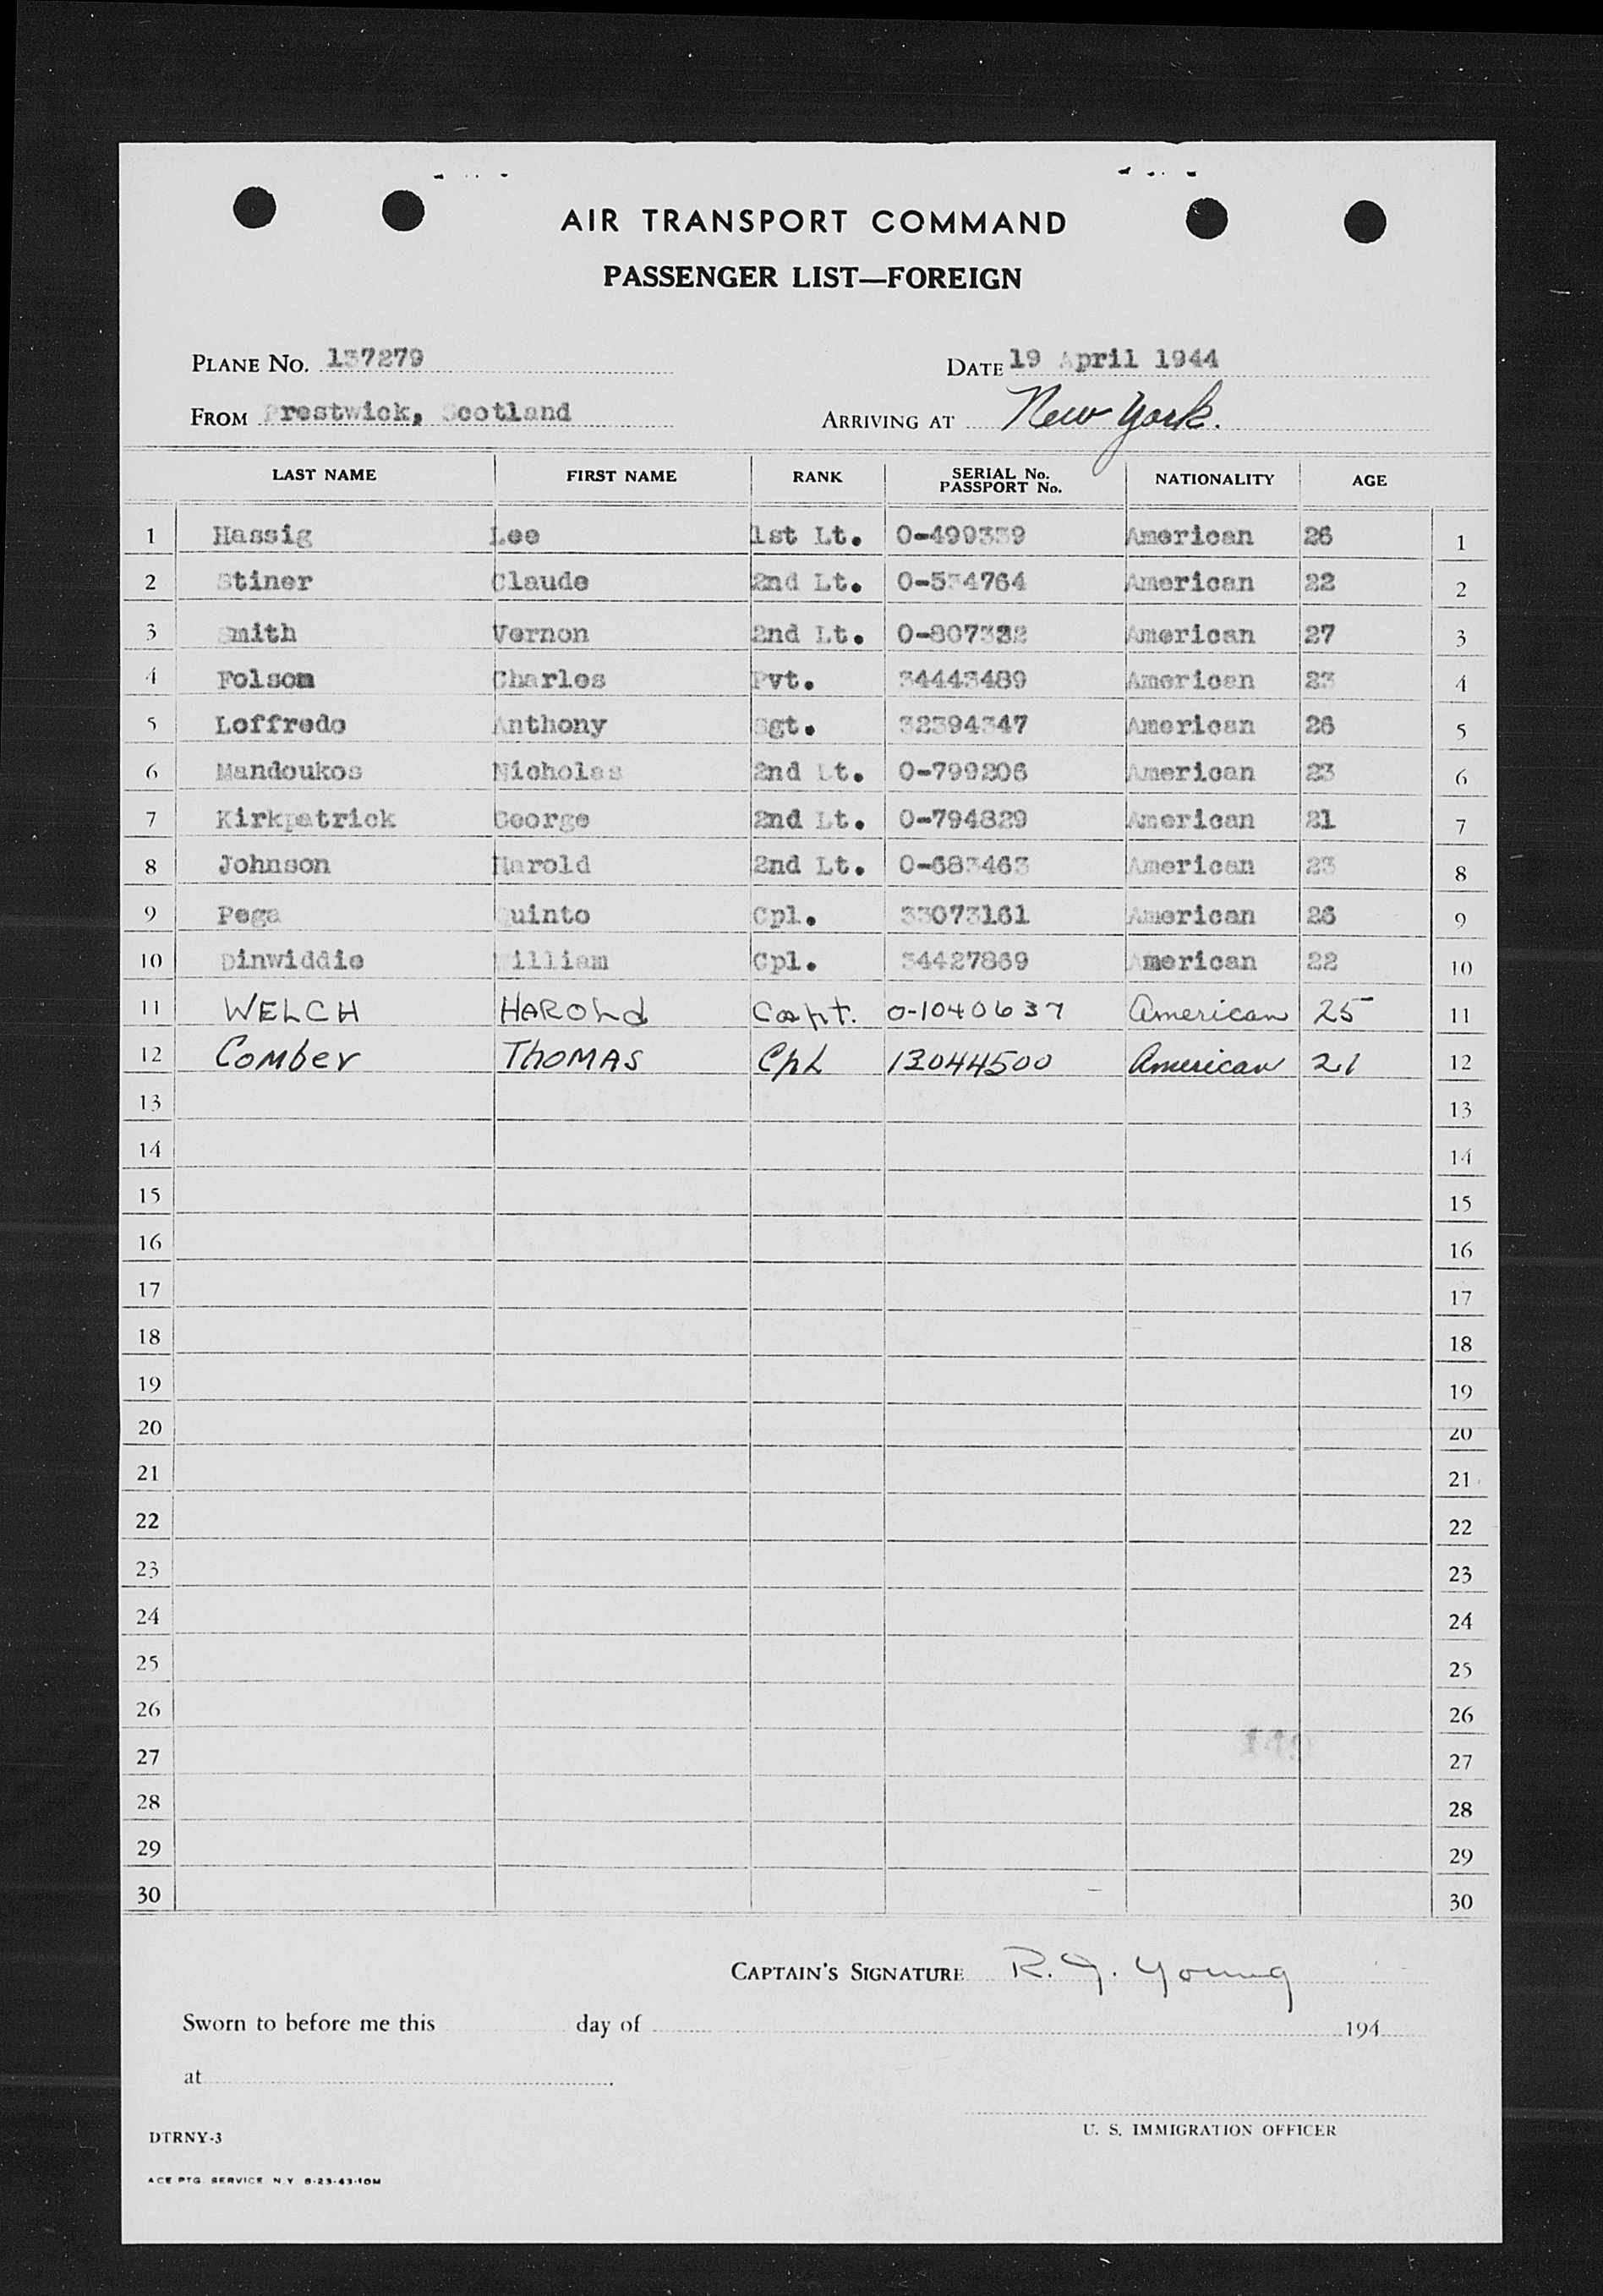 AIR TRANSPORT COMMAND
PASSENGER LIST—FOREIGN
PLANE No. 137279 DATE 19 April 1944
FROM Prestwick, Scotland ARRIVING AT New York.
LAST NAME FIRST NAME RANK SERIAL No. PASSPORT No. NATIONALITY AGE
1 Hassig Lee 1st Lt. O-499339 American 26 1
2 Stiner Claude 2nd Lt. O-534764 American 22 2
3 Smith Vernon 2nd Lt. O-807332 American 27 3
4 Folsom Charles Pvt. 34443489 American 23 4
5 Loffredo Anthony Sgt. 32394347 American 26 5
6 Mandoukos Nicholas 2nd Lt. O-799206 American 23 6
7 Kirkpatrick George 2nd Lt. O-794829 American 21 7
8 Johnson Harold 2nd Lt. O-683463 American 23 8
9 Pega Quinto Cpl. 33073161 American 26 9
10 Dinwiddie William Cpl. 34427869 American 22 10
11 WELCH HAROLd Capt. O-1040637 American 25 11
12 Comber ThOMAS CpL 13044500 American 21 12
13 13
14 14
15 15
16 16
17 17
18 18
19 19
20 20
21 21
22 22
23 23
24 24
25 25
26 26
27 27
28 28
29 29
30 30
CAPTAIN'S SIGNATURE R. J. Young
Sworn to before me this day of 194
at
U. S. IMMIGRATION OFFICER
DTRNY-3
ACE PTG. SERVICE N.Y. 8-23-43-10M